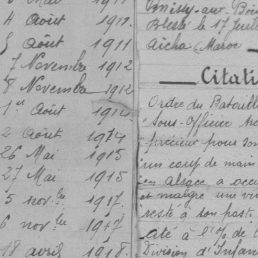 4 Août 1911
5 Août 1911
7 Novembre 1912
8 Novembre 1912
1er Août 1914
2 Août 1914
26 Mai 1915
27 Mai 1915
5 nov.bre 1917.
6 nov.bre 1917
18 avril 1918
Blessé le 17 Juill
Aïcha Maroc
Citati
Ordre du Bataill
Sous-Officier
précieux pour son
un coup de main
en Alsace, a occu
et malgré une vi
resté à son post
Cité à l'O/ de l
Division d'Infan